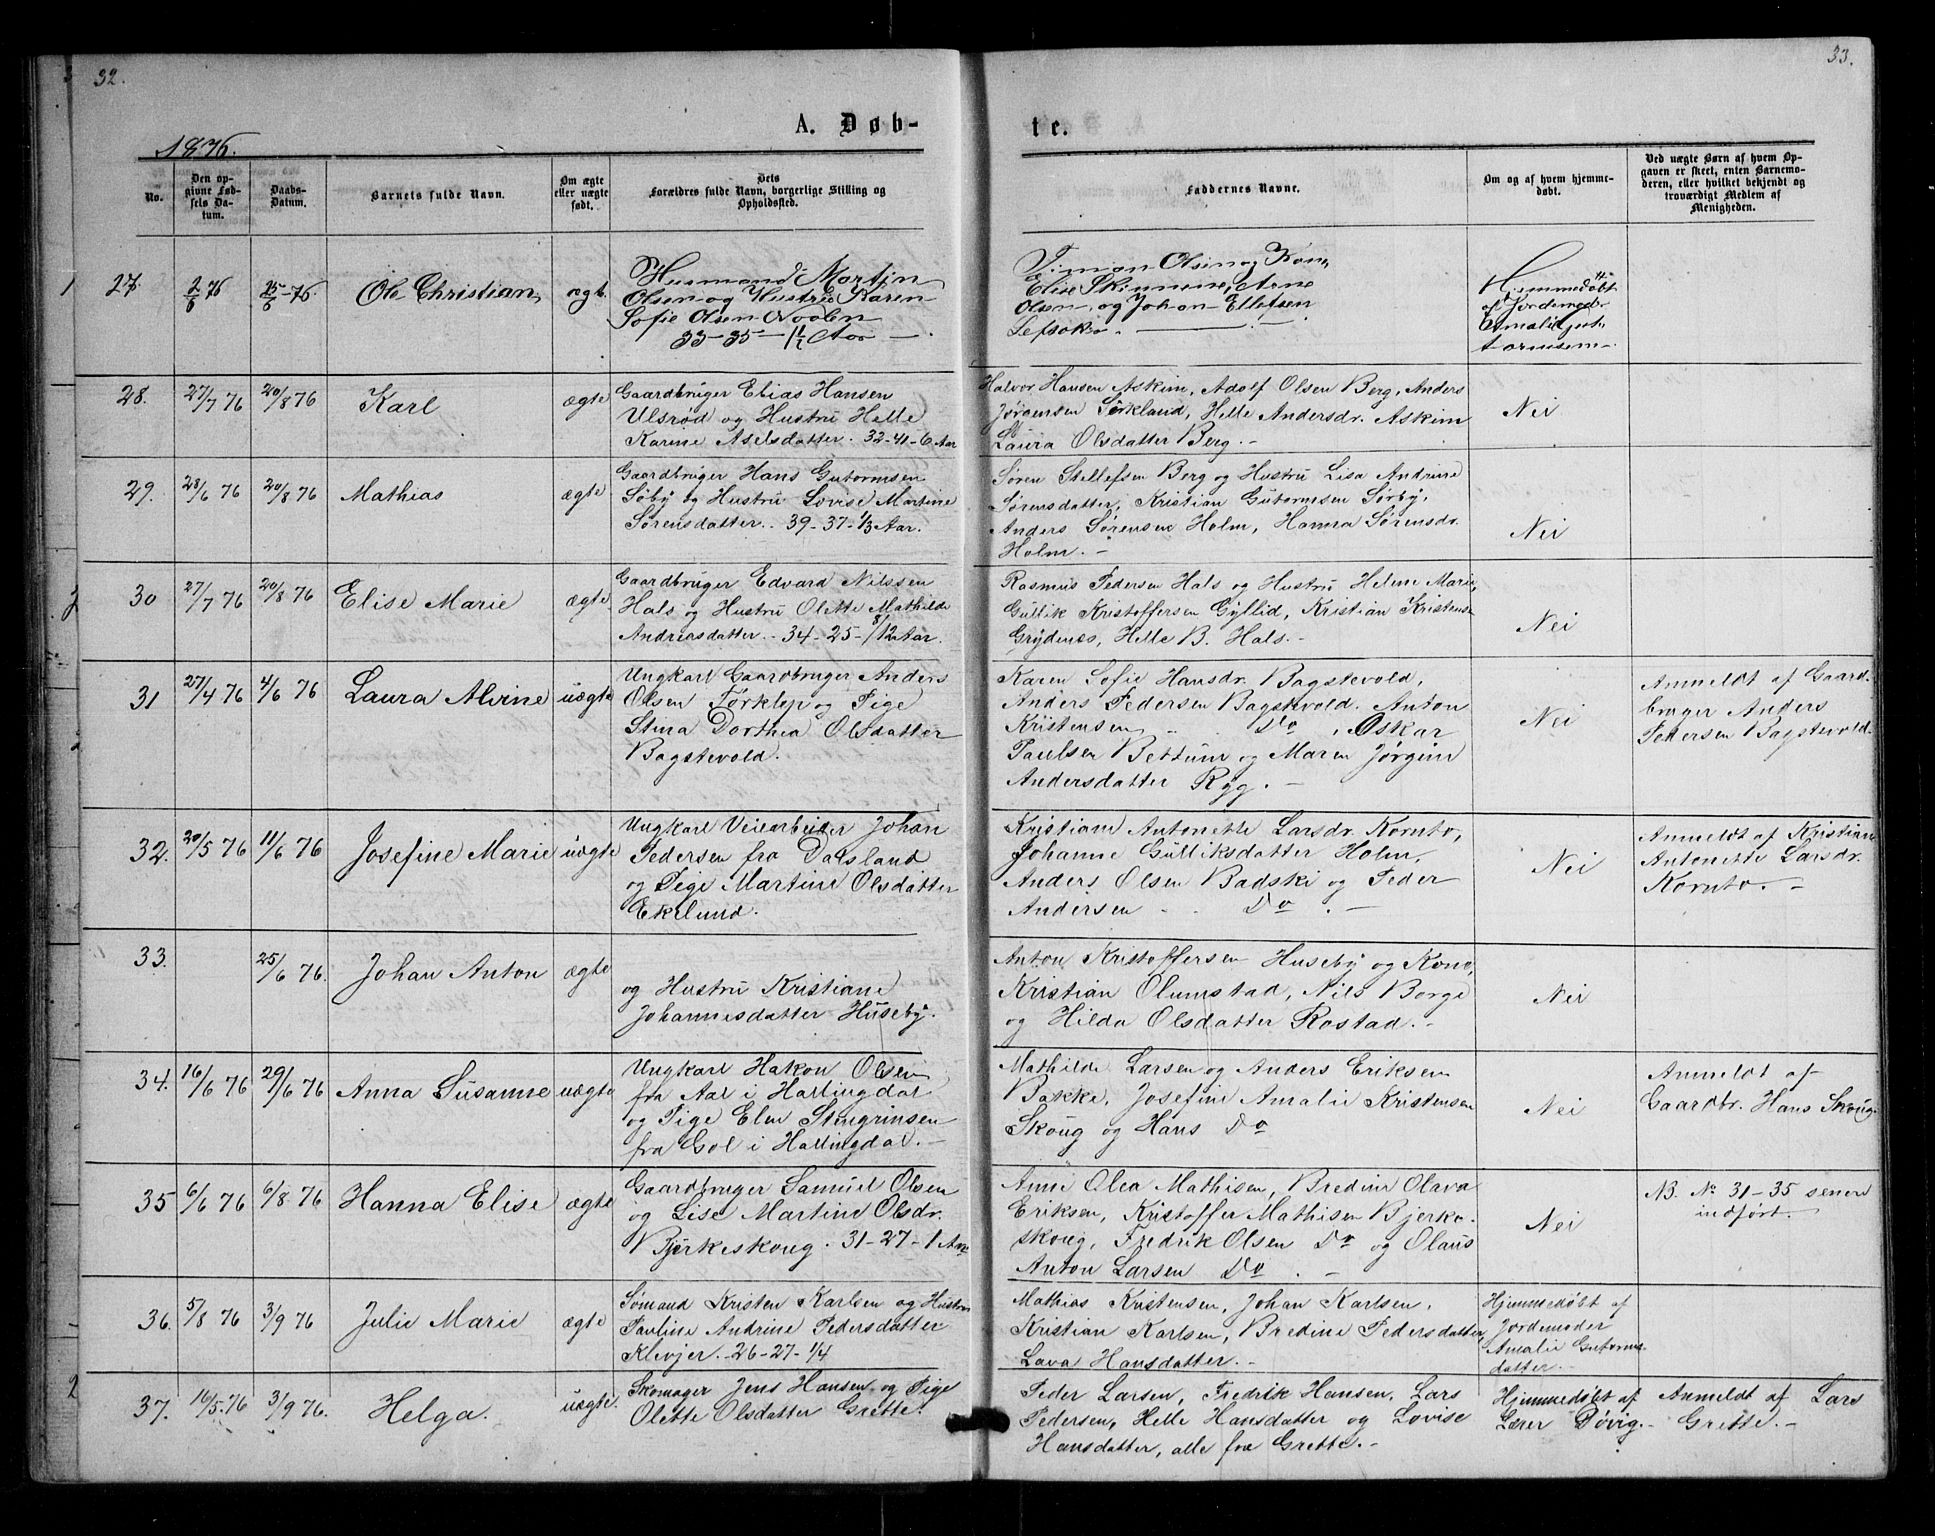 32.
33.
A. Døb-
te.
1876.
No.
Den op-
givne Fød-
sels Da-
tum.
Daabs-
Datum.
Barnets fulde Navn.
Om ægte
eller uægte
født.
Dets
Forældres fulde Navn, borgerlige Stilling og
Opholdssted.
Faddernes Navne.
Om og af hvem hjemme-
døbt.
Ved uægte Børn af hvem Op-
gaven er skeet, enten Barnemo-
deren, eller hvilket bekjendt og
troværdigt Medlem af
Menigheden.
27.
2/6 76
25/6-76.
Ole Christian
ægt.
Husmand Martin
Olsen og Hustru Karen
Sofie Olsen
33-35-1½ Aar
Simon Olsen og Kone
Elise Skinnene, Arne
Olsen, og Johan Ellefsen
Hjemmedøbt
af Jordemoder
Amalie
28.
27/7 76
20/8 76
Karl
ægte
Gaardbruger Elias Hansen
Ulsrød og Hustru Helle
Karine Aselsdatter. 32-41-6 Aar
Halvor Hansen Askim, Adolf Olsen Berg, Anders
Jørgensen Sørkland, Helle Andersdr. Askim
Laura Olsdatter Berg.-
Nei
29.
28/6 76
20/8 76
Mathias
ægte
Gaardbruger Hans Gutormsen
Søby og Hustru Lovise Martine
Sørensdatter. 39-37-1/3 Aar.
Søren Stellefsen Berg og Hustru Lisa Andrine
Sørensdatter, Kristian Gutormsen Sørby,
Anders Sørensen Holm, Hanna Sørensdr.
Holm.-
Nei
30
27/7 76
20/8 76
Elise Marie
ægte
Gaardbruger Edvard Nilssen
Hals og Hustru Olette Mathilde
Andreasdatter.- 34-25-18/12 Aar.
Rasmus Pedersen Hals og Hustru Helene Marie,
Gullik Kristoffersen Gyllid, Kristian Kristense
Grydenes, Helle B. Hals.-
Nei
31
27/4 76
4/6 76
Laura Alvine
uægte
Ungkarl Gaardbruger Anders
Olsen Førklep og Pige
Stina Dorthea Olsdatter
Bagstevold.
Karen Sofie Hansdr. Bagstevold,
Anders Pedersen Bagstevold. Anton
Kristensen Do, Oskar
Paulsen Bettum og Maren Jørgine
Andersdatter Ryg.-
Nei
Anmeldt af Gaard-
bruger Anders
Pedersen Bagstevold.
32.
20/5 76
11/6 76
Josefine Marie
uægte
Ungkarl Veiearbeider Johan
Pedersen fra Dalsland
og Pige Martine Olsdatter
Ekelund.
Kristiane Antonette Larsdr. Kornto,
Johanne Gulliksdatter Holm,
Anders Olsen Badski og Peder
Andersen Do.-
Nei
Anmeldt af Kristiane
Antonette Larsdr.
Kornto.-
33.
25/6 76.
Johan Anton
ægte
og Hustru Kristiane
Johannesdatter Huseby.
Anton Kristoffersen Huseby og Kone,
Kristian Olumstad, Nils Borge
og Hilda Olsdatter Rostad.-
Nei
34.
16/6 76
29/6 76
Anna Susanne
uægte
Ungkarl Hakon Olsen
fra Aal i Hallingdal
og Pige Elen Stengrinsen
fra Gol i Hallingdal.-
Mathilde Larsen og Anders Eriksen
Bakke, Josefine Amalie Kristensen
Skoug og Hans Do
Nei
Anmeldt af
Gaardbr. Hans Skoug.
35
6/6 76
6/8 76
Hanna Elise
ægte
Gaardbruger Samuel Olsen
og Lise Martine Olsdr.
Bjerkeskoug. 31-27-1 Aar
Anne Olea Mathisen, Bredine Olava
Eriksen, Kristoffer Mathisen Bjerke-
skoug, Fredrik Olsen Do og Olaus
Anton Larsen Do.-
Nei
NB. No 31-35 senere
indført.-
36.
5/8 76
3/9 76
Julie Marie
ægte
Sømand Kristen Karlsen og Hustru
Pauline Andrine Pedersdatter
Klevjer.-26-27-¼
Mathias Kristensen, Johan Karlsen,
Kristian Karlsen, Bredine Pedersdatter,
Lava Hansdatter.-
Hjemmedøbt af
Jordemoder
Amalie Gutorms-
datter.-
37.
16/5.76
3/9 76.
Helga.
uægte.
Skomager Jens Hansen og Pige
Olette Olsdatter Grette.
Peder Larsen, Fredrik Hansen, Lars
Pedersen, Helle Hansdatter og Lovise
Hansdatter, alle fra Grette.-
Hjemmedøbt af
Lærer Døvig.-
Anmeldt af Lars
Grette.-